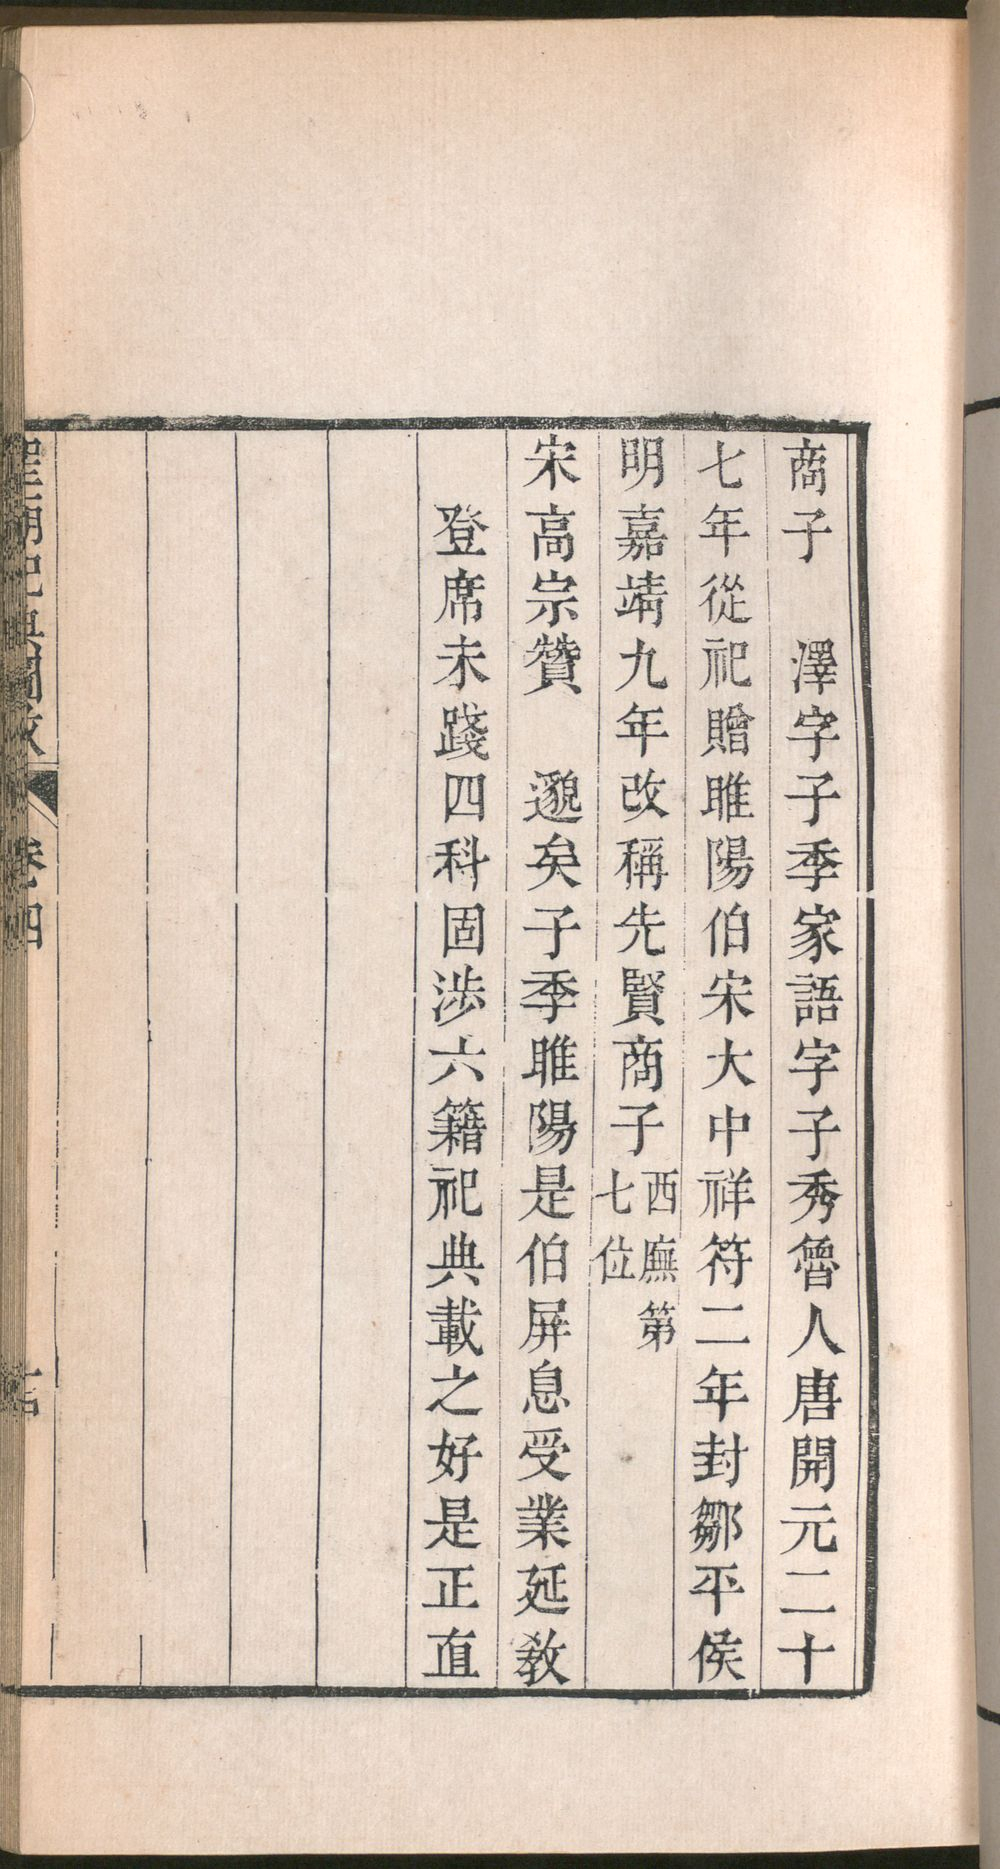 商子　澤字子季家語字子秀魯人唐開元二十
七年從祀贈睢陽伯宋大中祥符二年封鄒平侯
明嘉靖九年改稱先賢商子西廡第七位
宋高宗贊　邈矣子季睢陽是伯屏息受業延教
登席未踐四科固涉六籍祀典載之好是正直
卷四